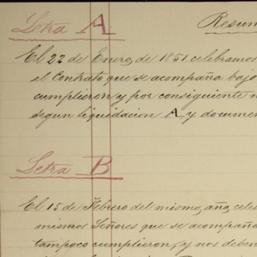 Letra A
Resum
El 22 de Enero, de 1851. celebramos
el Contrato que se acompaña bajo
cumplieron y por consiguiente n
segun liquidacion A y docume
Letra B
El 15 de Febrero del mismo, año, cele
mismos Señores que se acompaña
tampoco cumplieron, y nos deben